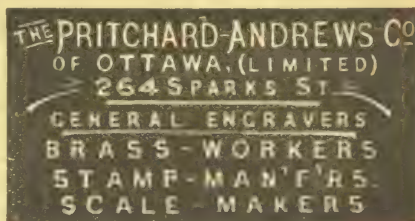 THE PRITCHARD-ANDREWS CO
OF OTTAWA. (LIMITED)
264 SPARKS ST.
GENERAL ENGRAVERS
BRASS-WORKERS
STAMP-MAN'F'RS.
SCALE-MAKERS